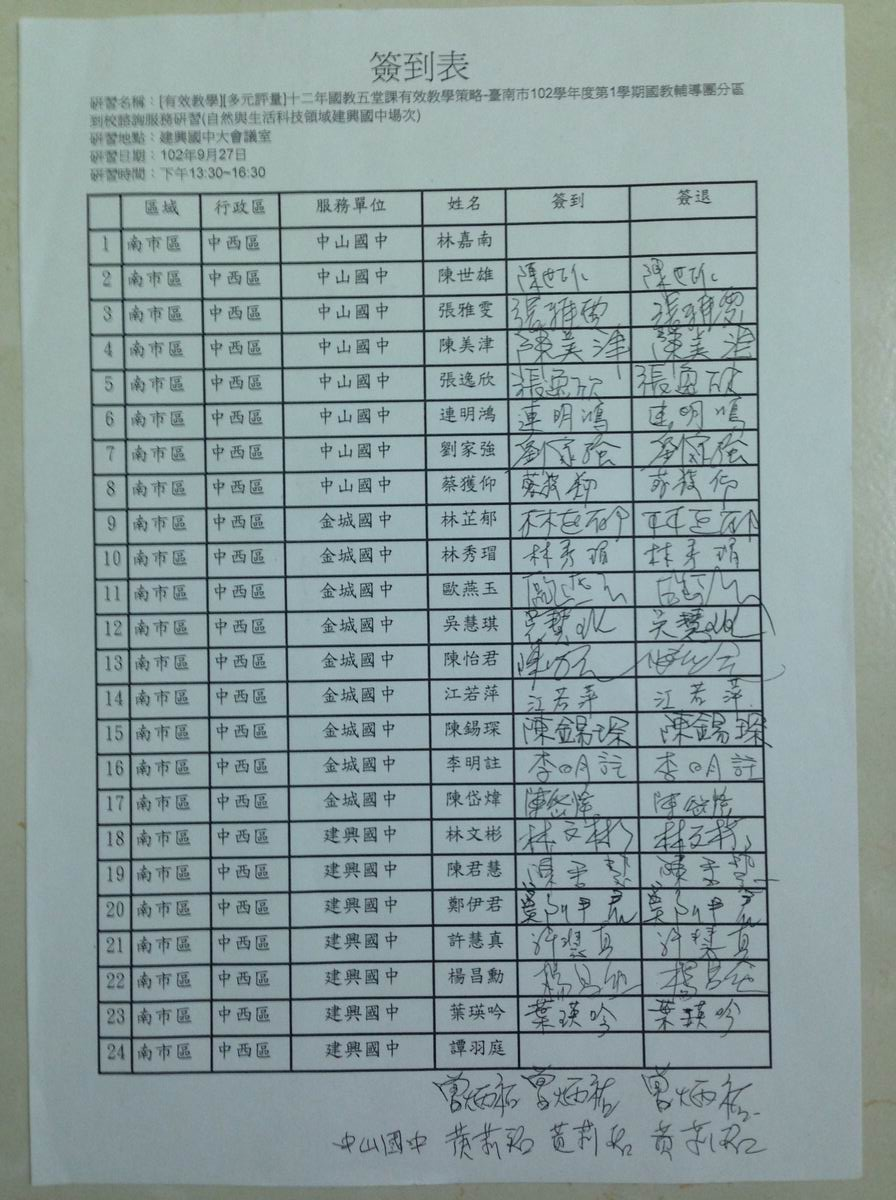 簽到表
研習名稱：[有效教學][多元評量]十二年國教五堂課有效教學策略-臺南市102學年度第1學期國教輔導團分區
到校諮詢服務研習(自然與生活科技領域建興國中場次)
研習地點：建興國中大會議室
研習日期：102年9月27日
研習時間：下午13:30~16:30
區域 行政區 服務單位 姓名 簽到 簽退
1 南市區 中西區 中山國中 林嘉南
2 南市區 中西區 中山國中 陳世雄 陳世雄 陳世雄
3 南市區 中西區 中山國中 張雅雯 張雅雯 張雅雯
4 南市區 中西區 中山國中 陳美津 陳美津 陳美津
5 南市區 中西區 中山國中 張逸欣 張逸欣 張逸欣
6 南市區 中西區 中山國中 連明鴻 連明鴻 連明鴻
7 南市區 中西區 中山國中 劉家強 劉家強 劉家強
8 南市區 中西區 中山國中 蔡獲仰 蔡獲仰 蔡獲仰
9 南市區 中西區 金城國中 林芷郁 林芷郁 林芷郁
10 南市區 中西區 金城國中 林秀瑁 林秀瑁 林秀瑁
11 南市區 中西區 金城國中 歐燕玉
12 南市區 中西區 金城國中 吳慧琪 吳慧琪 吳慧琪
13 南市區 中西區 金城國中 陳怡君 陳怡君 陳怡君
14 南市區 中西區 金城國中 江若萍 江若萍 江若萍
15 南市區 中西區 金城國中 陳錫琛 陳錫琛 陳錫琛
16 南市區 中西區 金城國中 李明註 李明註 李明註
17 南市區 中西區 金城國中 陳岱煒 陳岱煒 陳岱煒
18 南市區 中西區 建興國中 林文彬 林文彬 林文彬
19 南市區 中西區 建興國中 陳君慧 陳君慧 陳君慧
20 南市區 中西區 建興國中 鄭伊君 鄭伊君 鄭伊君
21 南市區 中西區 建興國中 許慧真 許慧真 許慧真
22 南市區 中西區 建興國中 楊昌勳 楊昌勳 楊昌勳
23 南市區 中西區 建興國中 葉瑛吟 葉瑛吟 葉瑛吟
24 南市區 中西區 建興國中 譚羽庭
曾炳祐 曾炳祐 曾炳祐
中山國中 黃莉君 黃莉君 黃莉君